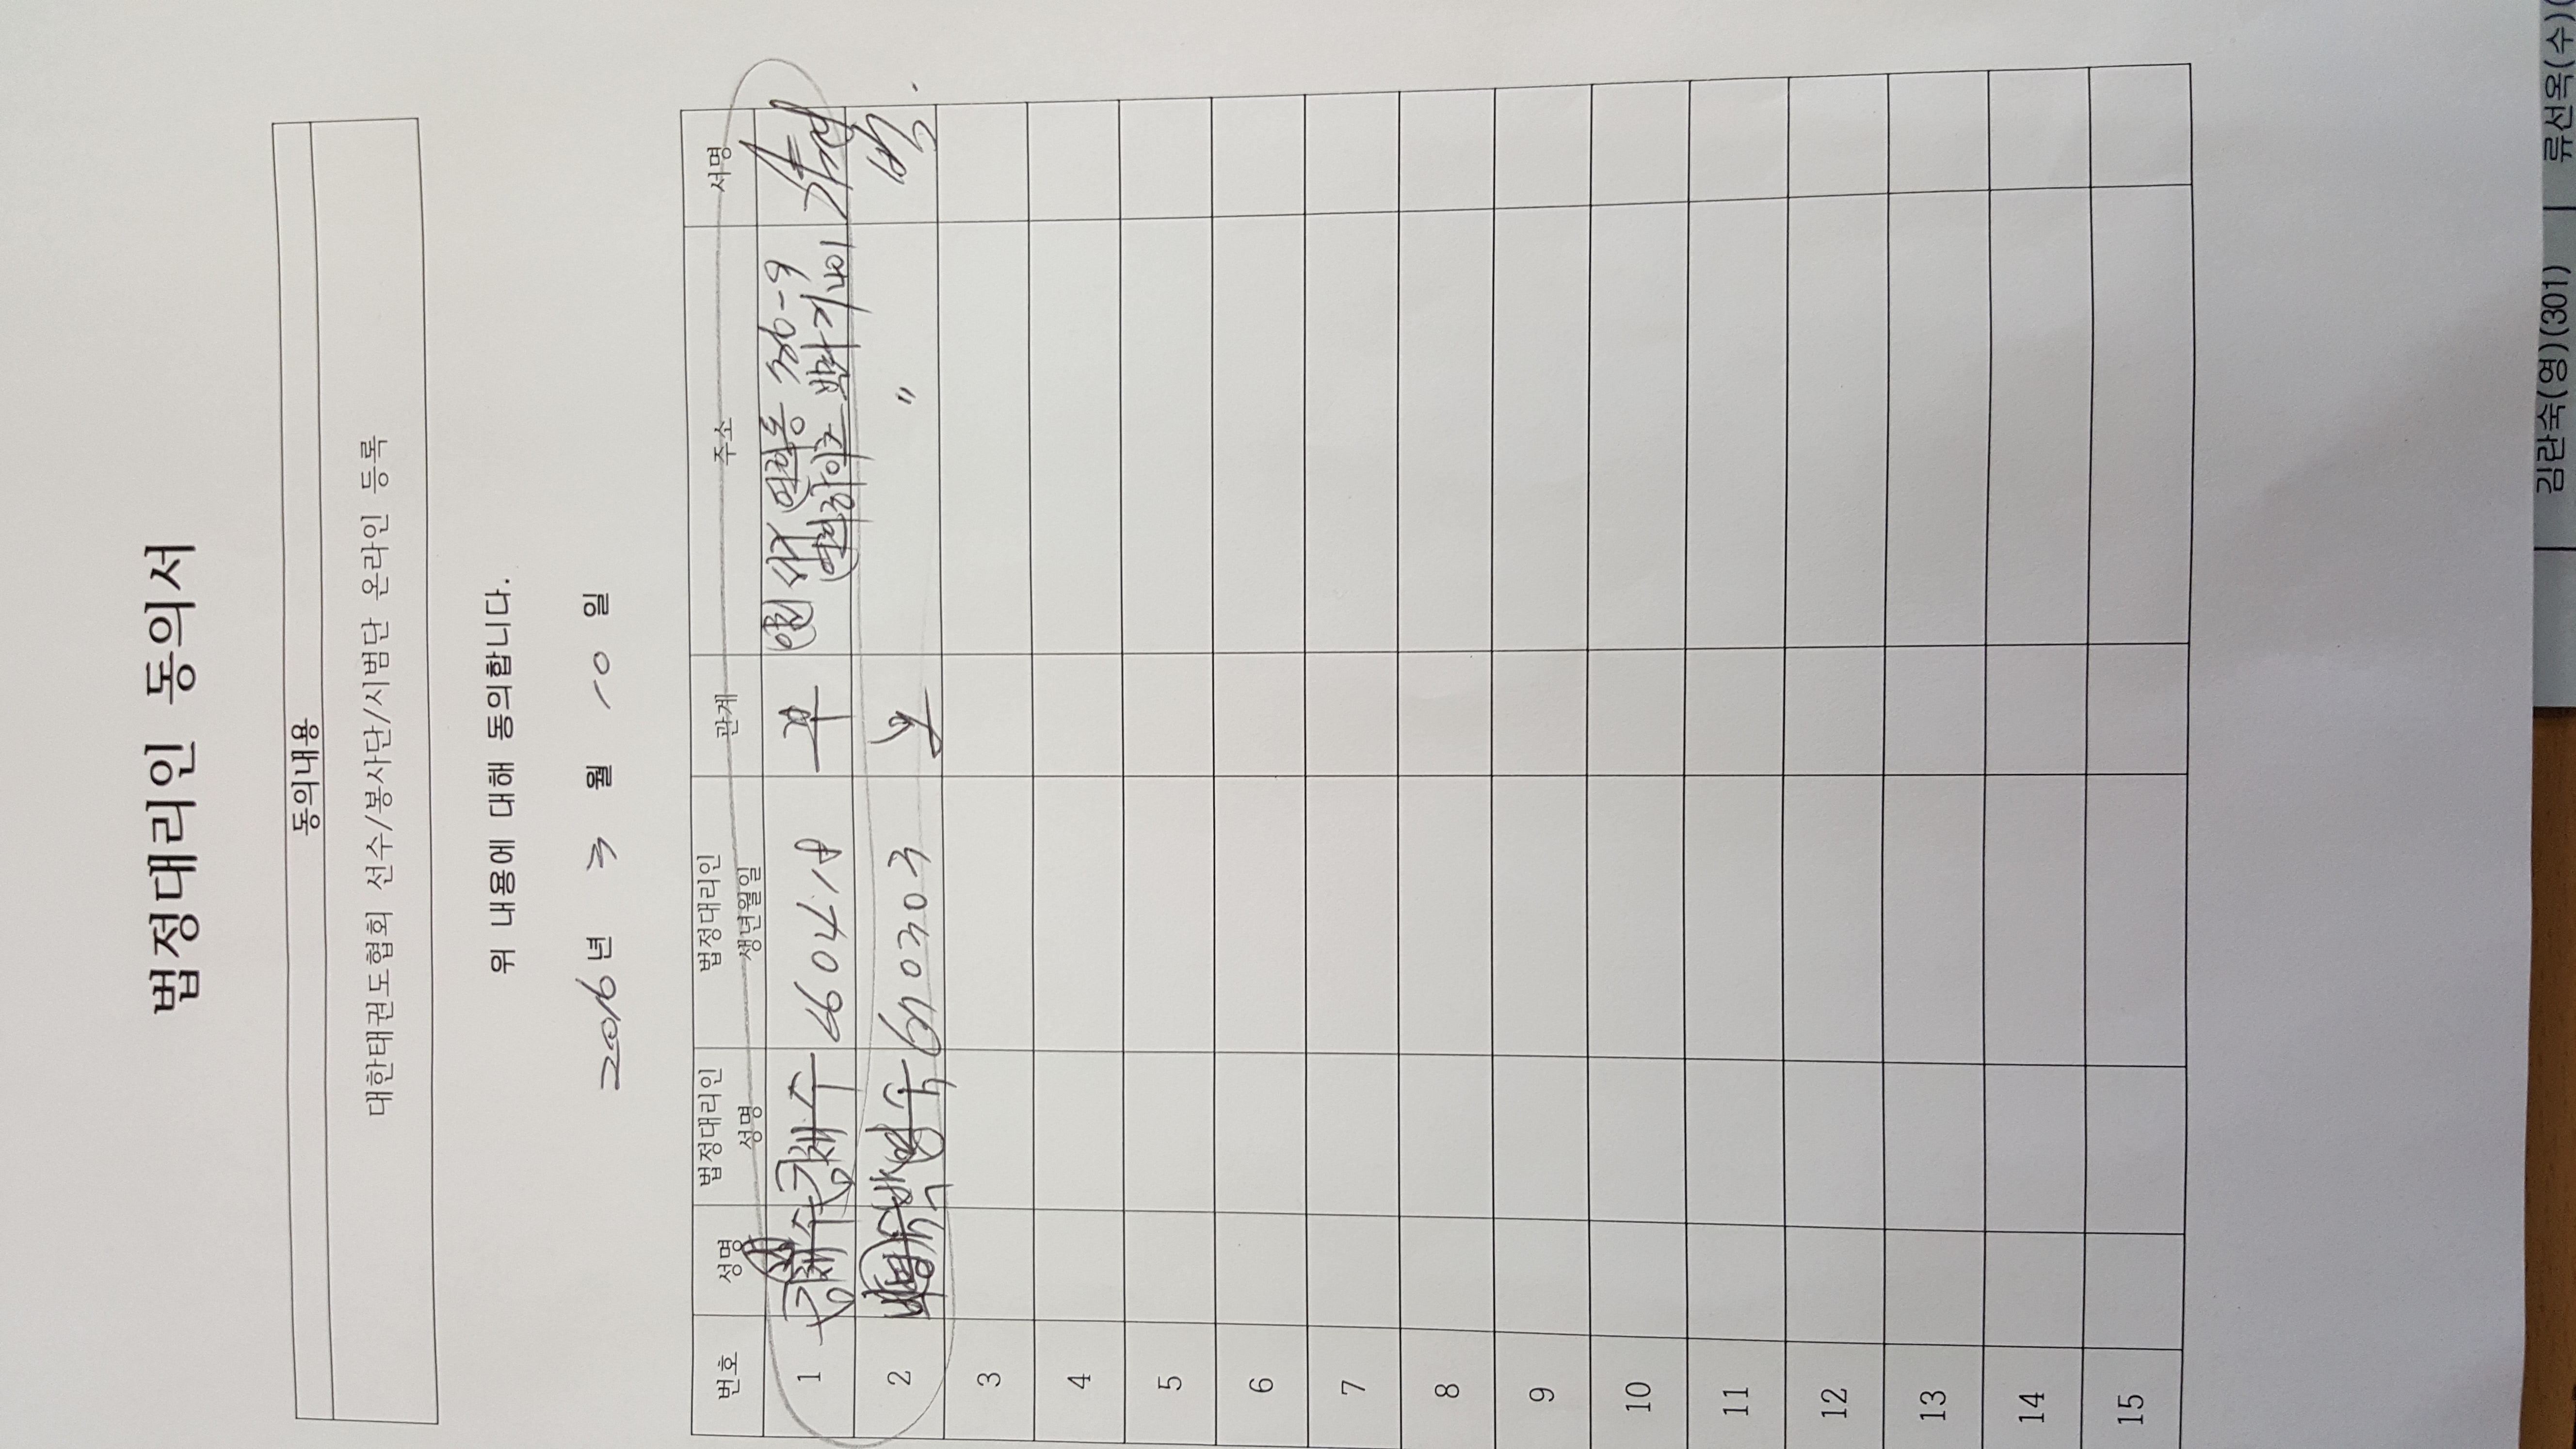 법정대리인 동의서
동의내용
대한태권도협회 선수/봉사단/시범단 온라인 등록
위 내용에 대해 동의합니다.
2016년 3 월 10 일
번호 성명 법정대리인 성명 법정대리인 생년월일 관계 주소 서명
1 강채수 660418 부 인천 서 연희동 730-9
2 610303 모 "
3
4
5
6
7
8
9
10
11
12
13
14
15
김란숙(영)(301) 류선옥(수)(